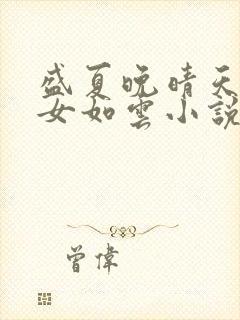 盛夏晚晴天
女如雲小說
曾偉